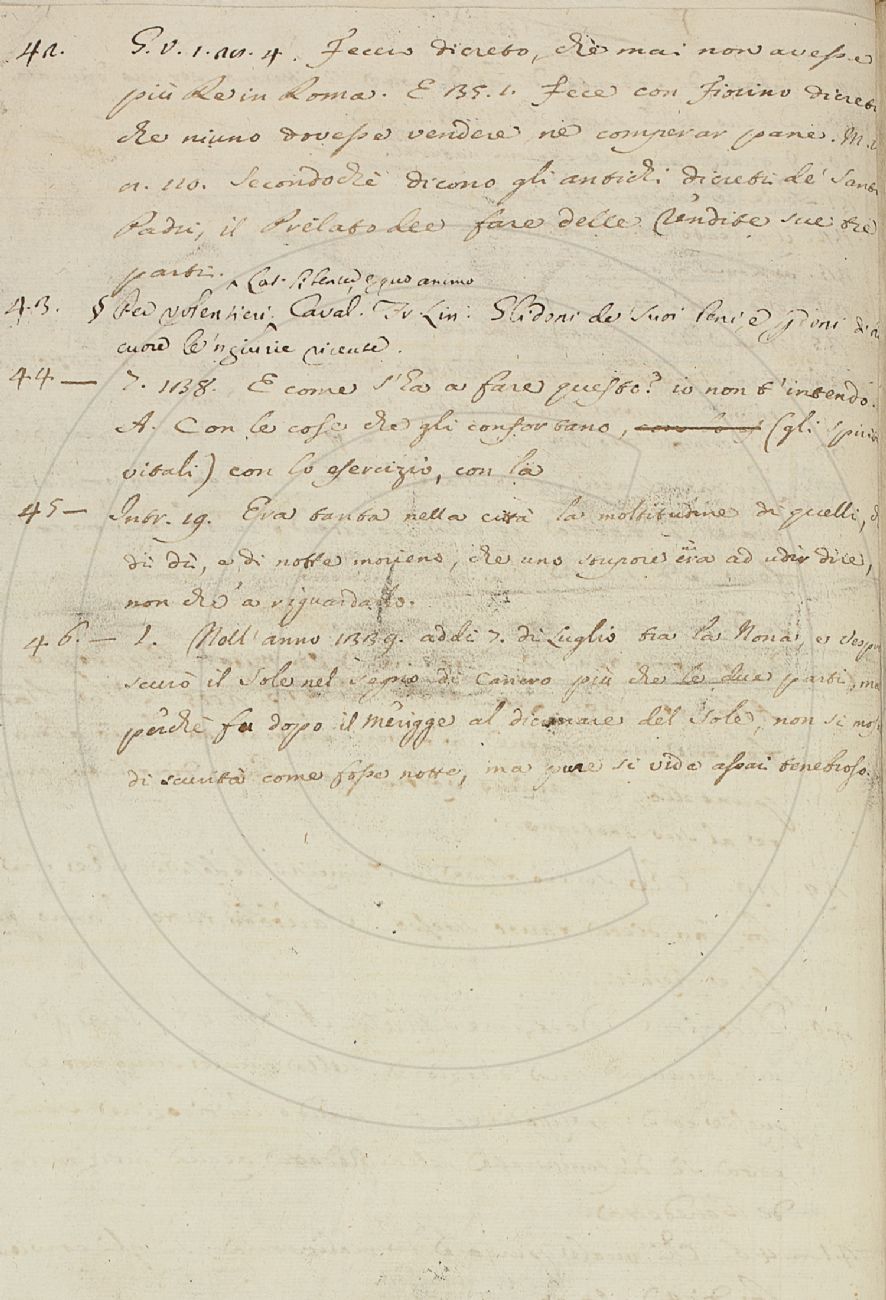 42. G. V. 1. 29. 4. Fecero dicreto, che mai non avesse
più Re in Roma. E 135. 1. Fece con Fiorino dicreto
che niuno dovesse vendere, nè comperar pane. M.
a. 110. Secondochè dicono gli antichi dicreti de' Santi
Padri, il Prelato dee fare delle rendite sue tre
parti.
^ Lat. libenter, equo animo
43. § Per volentieri. Caval. Fr. Lin: E li doni de' suoi beni, e doni di
cuore le 'ngiurie ricevute.
44 — 7. 1138. E come s'ha a fare questo? io non t'intendo.
A. Con le cose che gli confortano, (gli spiriti
vitali) con lo esercizio, con la
45 — Intr. 19. Era tanta nella città la moltitudine di quelli, che
di dì, e di notte morieno, che uno stupore era ad udir dire,
non che a riguardarlo.
46. — 2. Nell'anno 1339. addì 7. di Luglio tra la Nona, e Vespro
scurò il Sole nel segno di Cancro più che le due parti, ma
perchè fu dopo il merigge al dicinare del Sole, non si mostrò
di scurità come fosse notte, ma pure si vide assai tenebroso.